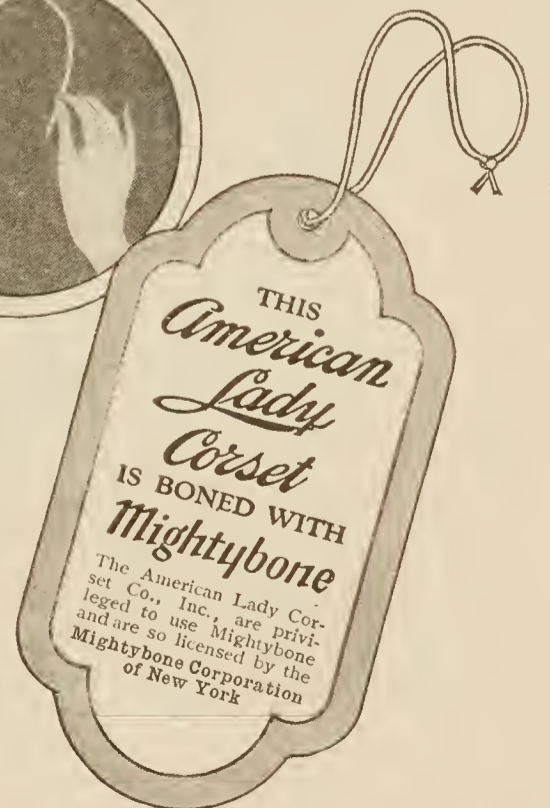 THIS
American
Lady
Corset
IS BONED WITH
Mightybone
The American Lady Cor-
set Co., Inc., are privi-
leged to use Mightybone
and are so licensed by the
Mightybone Corporation
of New York